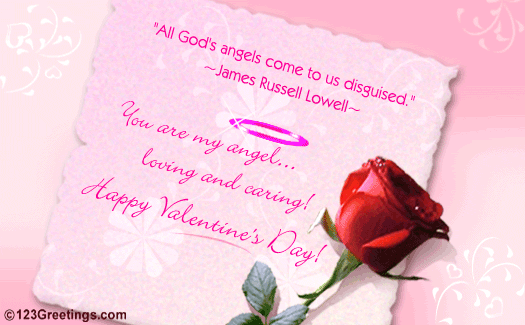 "All God's angels come to us disguised."
~James Russell Lowell~
You are my angel...
loving and caring!
Happy Valentine's Day!
©123Greetings.com